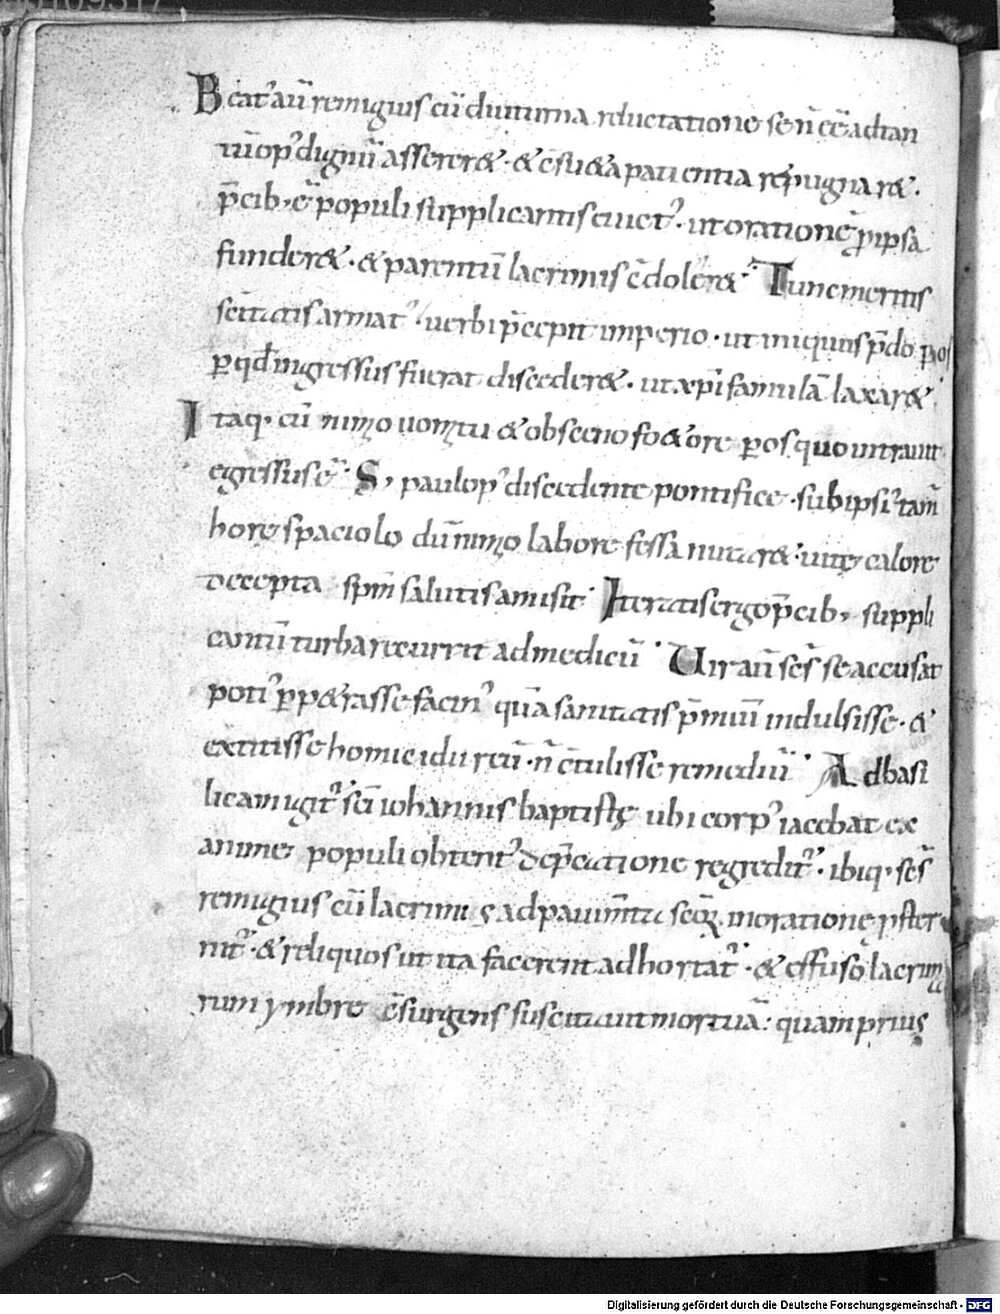 Beat᾿ aū remigius cū diuturna reluctatione se n̄ eē ad tan
tū op᾿ dignū assereret · & c̄sueta patientia repugnaret.
p̄cib; c̄ populi supplicantis euict᾿ · ut oratione p̱ ipsa
funderet · & parentū lacrimis c̄doleret · Tunc meritis
sc̄itatis armat᾿ · uerbi p̄cepit imperio · ut iniquus p̄do p̱ os
p̱ qđ ingressus fuerat discederet · ut xp̄i famulā laxaret ·
Itaq· cū nimio uomitu & obsceno foetore p̱ os quo intrauit
egressus ē · S; paulo p᾿ discedente pontifice · sub ipsi᾿ tam̄
hore spaciolo dū nimio labore fessa nutaret · uitę calore
decepta sp̄m salutis amisit · Iteratis ergo p̄cib; suppli
cantū turba recurrit ad medicū · Vir aū sc̄s se accusat
poti᾿ p̱petrasse facin᾿ quā sanitatis p̄miū indulsisse · &
extitisse homicidii reū · n̄ c̄tulisse remediū · Ad basi
licam igit᾿ sc̄i iohannis baptistę ubi corp᾿ iacebat ex
anime populi obtent᾿ dep̄catione regredit᾿ · ibiq· sc̄s
remigius cū lacrimis ad pauim̄ta sc̄oꝝ in oratione p̱ster
nit᾿ · & reliquos ut ita facerent adhortat᾿ · & effuso lacrima
rum ymbre c̄surgens suscitauit mortuā: quam prius